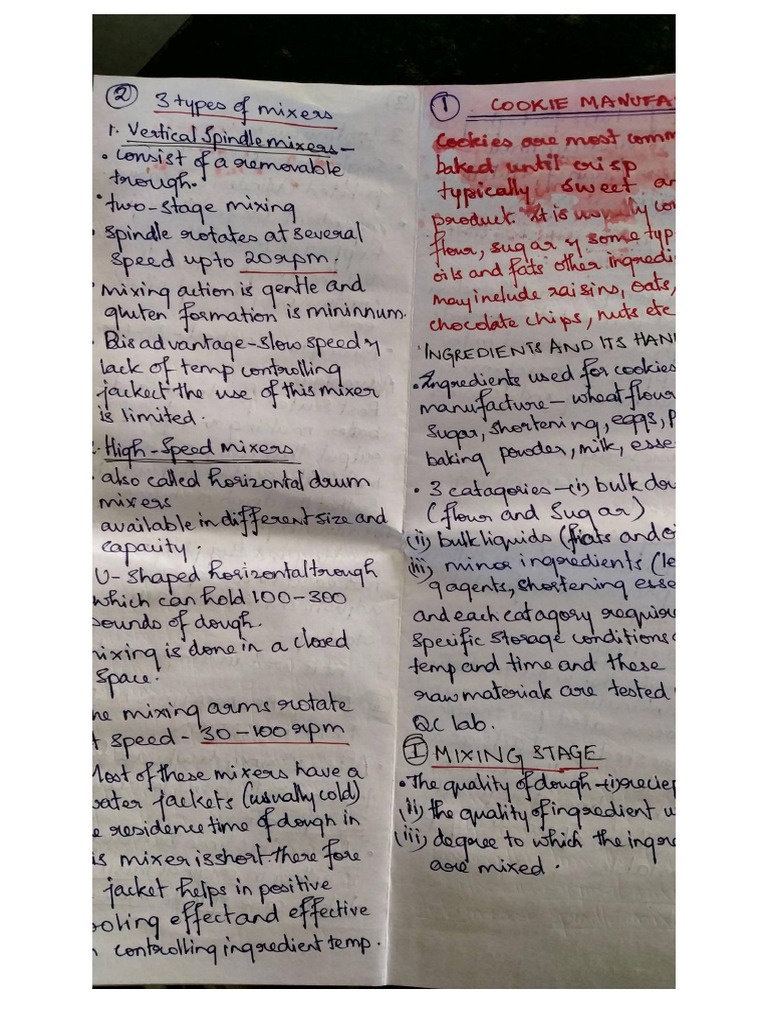 ② 3 types of mixers
1. Vertical Spindle mixers -
• consist of a removable
trough.
• two-stage mixing
• spindle rotates at several
speed upto 20 rpm.
• mixing action is gentle and
gluten formation is mininnum.
• Disadvantage - slow speed &
lack of temp controlling
jackect the use of this mixer
is limited.
2. High-Speed mixers
• also called horizontal drum
mixers
available in different size and
capacity.
U-shaped horizontal trough
which can hold 100-300
ounds of dough.
ixing is done in a closed
space.
he mixing arms rotate
t speed - 30-100 rpm
Most of these mixers have a
ater jackets (usually cold)
e residence time of dough in
is mixer is short. there fore
jacket helps in positive
ooling effect and effective
n controlling ingredient temp.
① COOKIE MANUFA
Cookies are most comm
baked until crisp
typically sweet an
product. It is usually co
flour, sugar & some typ
oils and fats other ingredi
may include raisins, oats,
chocolate chips, nuts etc
INGREDIENTS AND ITS HAN
• Ingredients used for cookies
manufacture - wheat flour
sugar, shortening, eggs, p
baking powder, milk, esse
• 3 catagories - (i) bulk dr
(flour and sugar)
(ii) bulk liquids (fats and oi
(iii) minor ingredients (le
g agents, shortening esse
and each catagory require
specific storage conditions
temp and time and these
raw materials are tested
QC lab.
Ⓘ MIXING STAGE
• The quality of dough - (i) reciep
(ii) the quality of ingredient u
(iii) degree to which the ingre
are mixed.